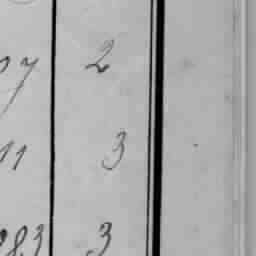 07 2
11 3
283 3